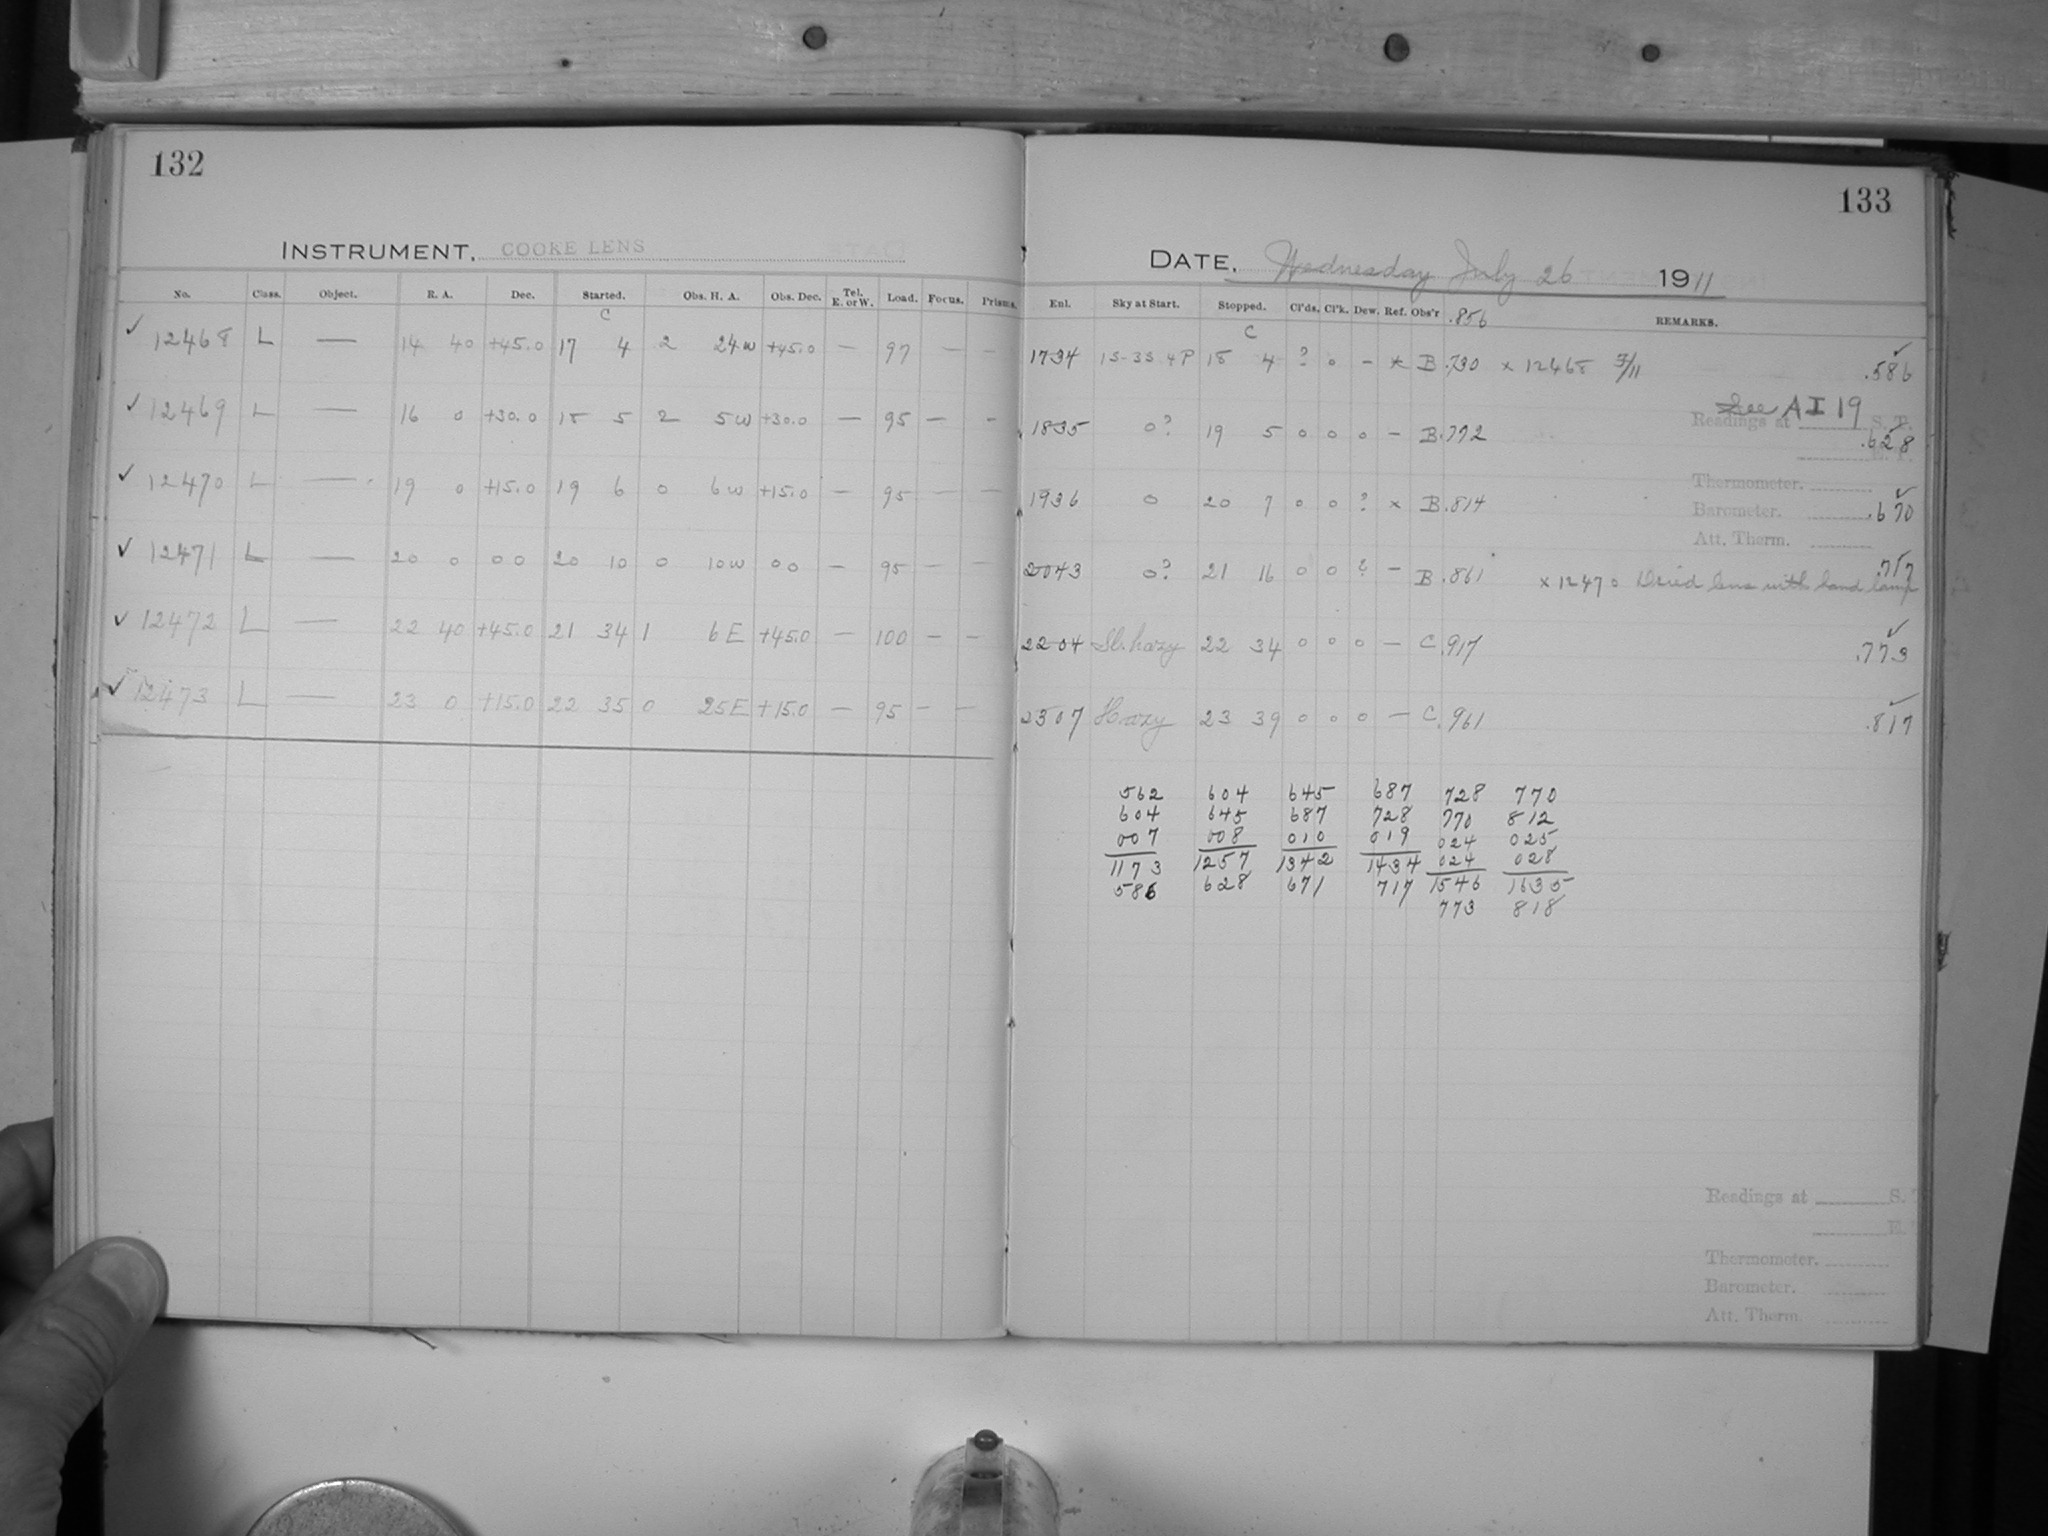 132
INSTRUMENT, COOKE LENS
No. Class. Object. R. A. Dec. Started. Obs. H. A. Obs. Dec. Tel. E. or W. Load. Focus. Prisms.
C
✓ 12468 L — 14 40 +45.0 17 4 2 24 W +45.0 — 97 — —
✓ 12469 L — 16 0 +30.0 18 5 2 5 W +30.0 — 95 — —
✓ 12470 L — 19 0 +15.0 19 6 0 6 W +15.0 — 95 — —
✓ 12471 L — 20 0 0 0 20 10 0 10 W 0 0 — 95 — —
✓ 12472 L — 22 40 +45.0 21 34 1 6 E +45.0 — 100 — —
✓ 12473 L — 23 0 +15.0 22 35 0 25 E +15.0 — 95 — —
133
DATE, Wednesday July 26 1911
Enl. Sky at Start. Stopped. Cl'ds. Cl'k. Dew. Ref. Obs'r .856 REMARKS.
C
1734 1S-3S 4P 18 4 ? 0 - × B .730 × 12468 .586
See A I 19
Readings at S. T.
1835 0? 19 5 0 0 0 — B .772 .628
Thermometer.
1936 0 20 7 0 0 ? × B .814 Barometer. .670
Att. Therm.
2043 0? 21 16 0 0 ? — B .861 .717
× 12470 Dried lens with hand lamp
2204 Sl. hazy 22 34 0 0 0 — C .917 .773
2307 Hazy 23 39 0 0 0 — C .961 .817
562 604 645 687 728 770
604 645 687 728 770 812
007 008 010 019 024 025
1173 1257 1342 1434 024 028
586 628 671 717 1546 1635
773 818
Readings at S.
Thermometer.
Barometer.
Att. Therm.